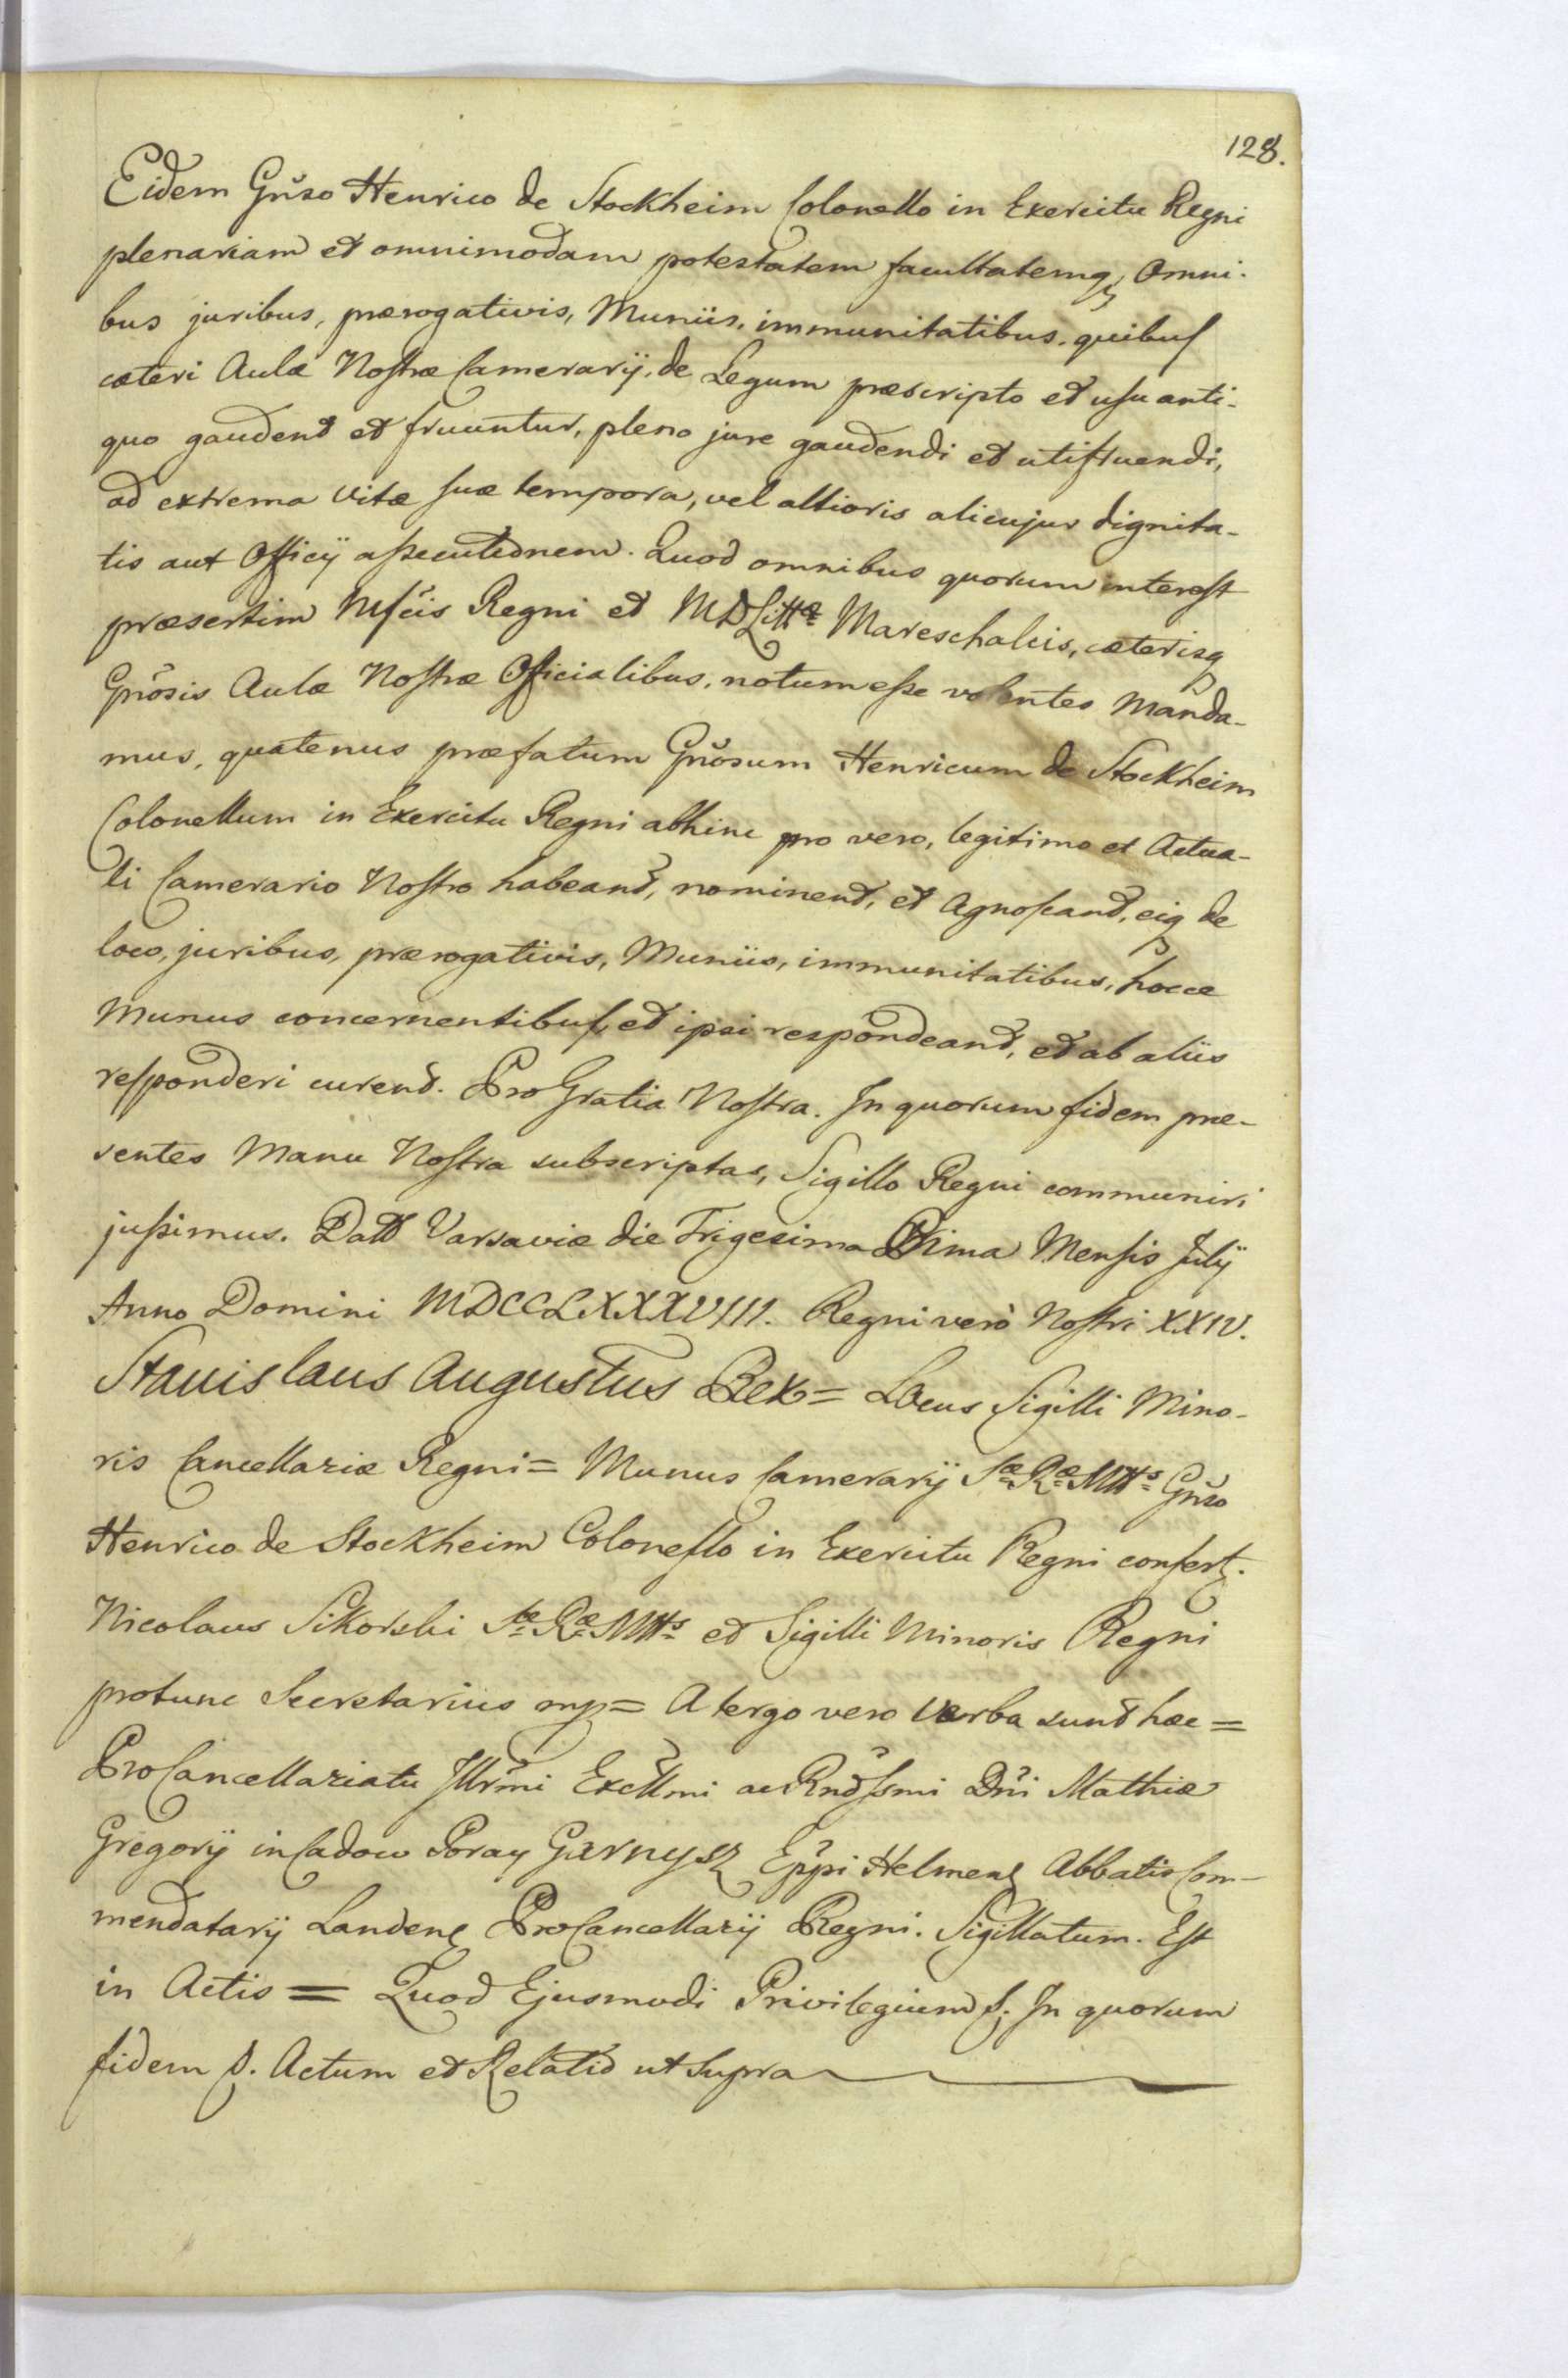 128.
Eidem Gñso Henrico de Stockheim Colonello in Exercitu Regni
plenariam et omnimodam potestatem facultatemq, Omni-
bus juribus, prærogativis, Muniis, immunitatibus, quibus
cæteri Aulæ Nostræ Camerarij, de Legum præscripto et usu anti-
quo gaudent et fruuntur, pleno jure gaudendi et utifruendi,
ad extrema vitæ suæ tempora, vel altioris alicujus dignita-
tis aut Officij assecutionem. Quod omnibus quorum interest
præsertim Mfcis Regni et MDLittæ Mareschalcis, cæterisq
Gnõsis Aulæ Nostræ Officialibus, notum esse volentes Manda-
mus, quatenus præfatum Gnõsum Henricum de Stockheim
Colonellum in Exercitu Regni abhinc pro vero, legitimo et Actua-
li Camerario Nostro habeant, nominent, et Agnoscant, eiq de
loco, juribus, prærogativis, Muniis, immunitatibus, hocce
Munus concernentibus, et ipsi respondeant, et ab aliis
responderi curent. Pro Gratia Nostra. In quorum fidem præ-
sentes Manu Nostra subscriptas, Sigillo Regni communiri
jussimus. Datt Varsaviæ die Trigesima Prima Mensis Julij
Anno Domini MDCCLXXXVIII. Regni verò Nostri XXIV.
Stanislaus Augustus Rex = Locus Sigilli Mino-
ris Cancellariæ Regni = Munus Camerarij Sæ Ræ Mttis Gñso
Henrico de Stockheim Colonello in Exercitu Regni confert.
Nicolaus Sikorski Sæ Ræ Mttis et Sigilli Minoris Regni
protunc Secretarius mp = A tergo vero verba sunt hæc =
ProCancellariatu Illrmi Excllmi ac Rndssmi Dñi Mathiæ
Gregorij in Cadow Poray Garnysz Eppi Helmens Abbatis Com-
mendatarij Landens ProCancellarij Regni. Sigillatum. Est
in Actis = Quod Ejusmodi Privilegium f. In quorum
fidem f. Actum et Relatio ut supra